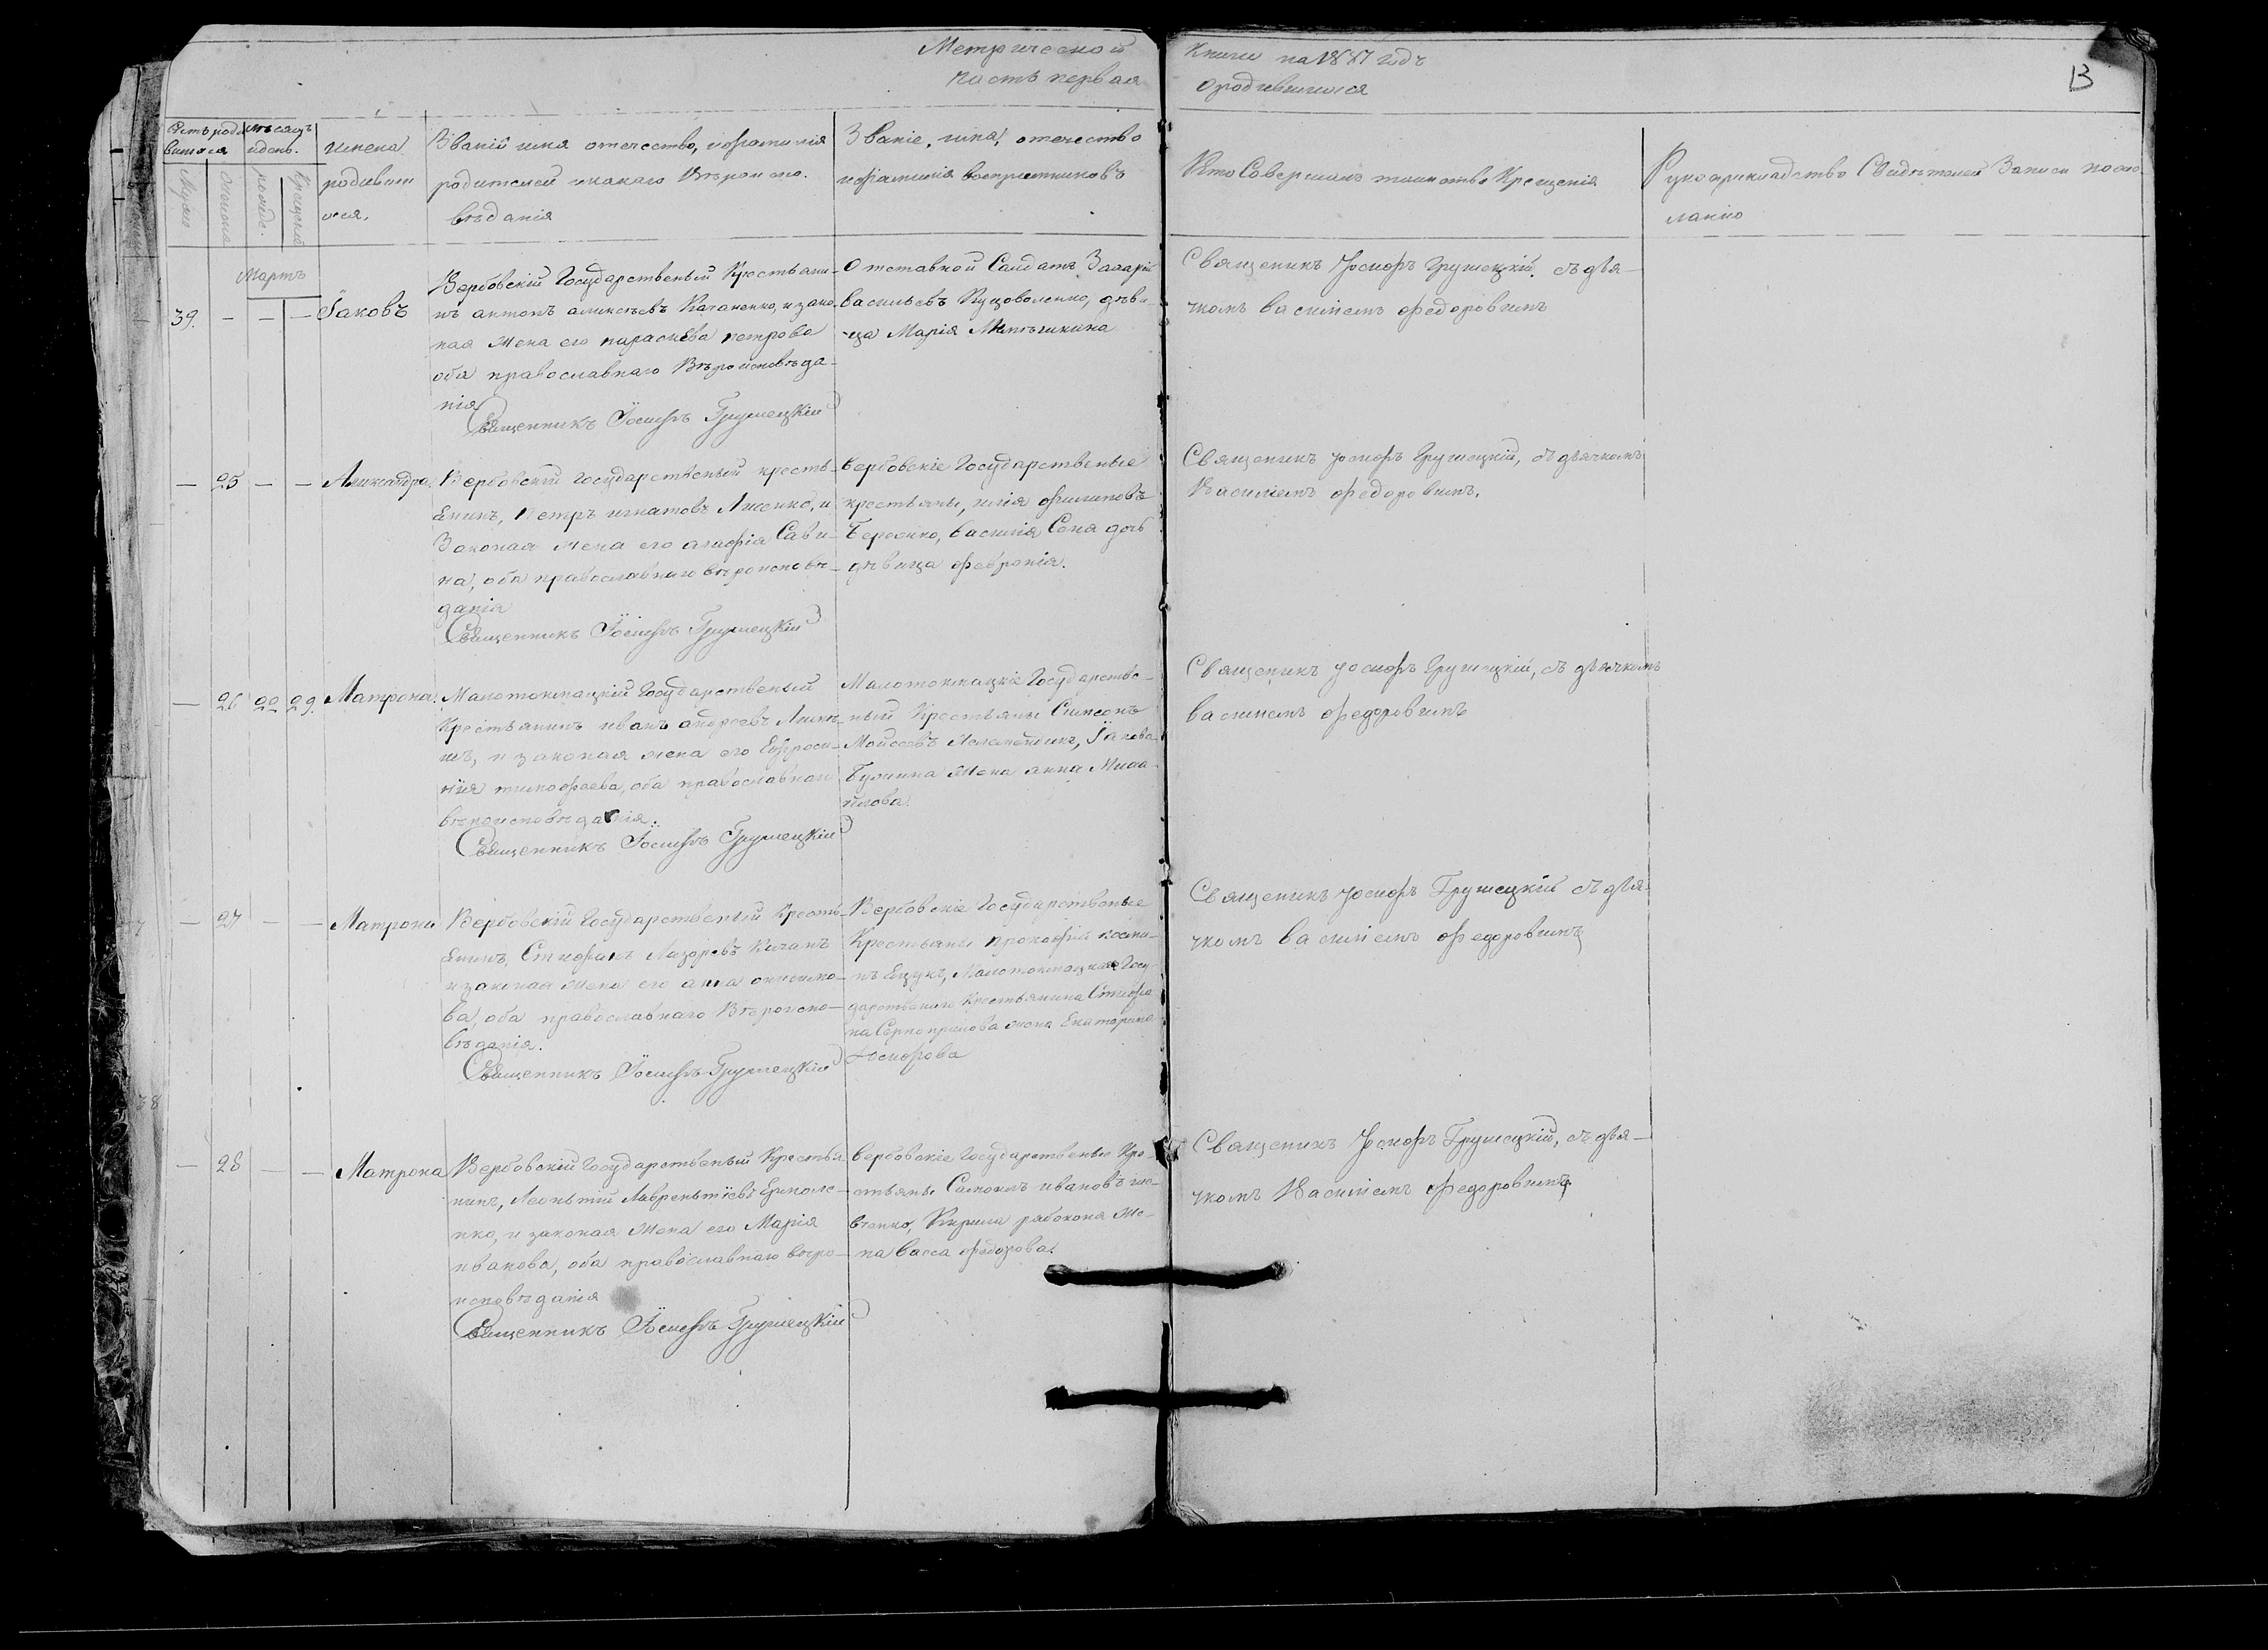 Метрической
часть первая
Книги на 1887 годъ
о родившихся
13
Счетъ роди
вшихся
Мѣсяцъ
и день.
Муже
Женска
рожд.
Крещенія
имена
родивши
хся.
Званій имя отечество, и фамилія
родителей и какаго Вѣроиспо.
вѣданія
Званіе, имя, отечество
и фамилія воспріемниковъ
Кто Совершалъ таинство Крещенія
Рукоприкладство Свидѣтелей Записи по же-
ланію
Мартъ
39. — — — Іаковъ
Вербовскій Государственый Крестьяни-
нъ антонъ алексѣевъ Каганенко, и зако-
ная жена его параскева петрова
оба православнаго Вѣроисповѣда-
нія
Священникъ Іосифъ Грушецкій
Отставной Салдатъ Захарій
васильевъ Куцоволенко, дѣви-
ца Марія
Священикъ Іосифъ Грушецкій. съ дья-
чкомъ василіемъ федоровимъ
— 25 — — Александра.
Вербовскій Государственый кресть-
янинъ, Петръ игнатовъ Ляшенко, и
Законая жена его агафія Сави-
на, оба православнаго вѣроисповѣ-
данія
Священникъ Іосифъ Грушецкій
Вербовскіе Государственые
крестьяны, илія филиповъ
Бережко, василія Сена дочь
дѣвица февронія.
Священикъ Іосифъ Грушецкій, съ дьячкомъ
Василіемъ федоровимъ.
— 26 22 29. Матрона.
Малотокмацкій Государственый
Крестьянинъ иванъ андреевъ
нъ, и законая жена его Ефроси-
нія тимофеева, оба православнаго
вѣроисповѣданія.
Священникъ Іосифъ Грушецкій
Малотокмацкіе Государстве-
ный Крестьяны Симеонъ
Мойсеевъ Іакова
жена анна Миха-
йлова
Священикъ Іосифъ Грушецкій, съ дьячкомъ
василіемъ федоровимъ
— 27 — — Матрона
Вербовскій Государственый Кресть-
янинъ, Стефанъ Лазоревъ Качанъ
и законая жена его анна
ва, оба православнаго Вѣроиспо-
вѣданія.
Священникъ Іосифъ Грушецкій
Вербовскіе Государственые
Крестьяны прокофій косми-
нъ Ецукъ, Малотокмацкаго Госу-
дарственаго Крестьянина Стефа-
на жена Екатерина
Іосифова
Священикъ Іосифъ Грушецкій съ дья-
чкомъ василіемъ федоровимъ
— 28 — — Матрона
Вербовскій Государственый Крестья-
нинъ, Леонтій Лаврентіевъ Ермоле-
нко, и законая жена его Марія
иванова, оба православнаго вѣро-
исповѣданія
Священникъ Іосифъ Грушецкій
Вербовскіе Государственые Кре-
стьяны Самоилъ ивановъ ше-
вченко, Кирила рябокона же-
на васса федорова.
Священикъ Іосифъ Грушецкій, съ дья-
чкомъ Василіемъ федоровимъ